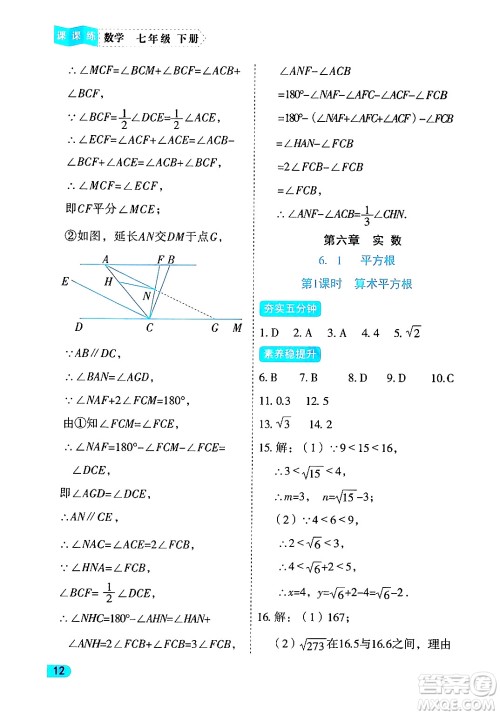 课课练 数学 七年级 下册
∴∠MCF=∠BCM+∠BCF=∠BAC+
∠BCF,
∵∠BCF=1/2∠DCE=1/2∠ACE,
∴∠ECF=∠ACF+∠ACE=∠ACB-
∠BCF+∠ACE=∠BAC+∠BCF,
∴∠MCF=∠ECF,
即CF平分∠MCE;
②如图，延长AN交DM于点G,
A F B
H N
D E C G M
∵AB∥DM,
∴∠BAN=∠AGD,
∵∠NAF+2∠FCE=180°,
由①知∠MCF=∠FCE,
∴∠NAF=180°-∠MCF-∠FCE=
∠DCE,
即∠AGD=∠DCE,
∴AN∥CF,
∴∠NAC=∠ACE=2∠FCB,
∵∠HNA=∠FCB,
∠BCF=1/2∠DCE,
∴∠NHC=180°-∠AHN=∠ACB+
∠ANH=2∠FCB+∠FCB=3∠FCB,
12
∠ANF-∠ACB
=180°-∠NAF-∠AFC-∠ACB
=180°-(∠NAF+∠AFC+∠ACB)
=∠HAC+∠FCB
=2∠FCB+∠FCB
=∠CHN,
∴∠ACF=1/3∠CHN.
第六章 实数
6.1 平方根
第1课时 算术平方根
夯实五分钟
1. D 2. A 3. A 4. 4 5. √2
素养稳提升
6. B 7. C 8. D 9. D 10. C
11. 0.3 12. 5
13. √3 14. 2
15. 解：(1)∵9＜15＜16,
∴3＜√15＜4,
∴m=3, n=√15-3;
(2)∵4＜6＜9,
∴2＜√6＜3,
∴4＜√6+2＜5,
∴x=4, y=√6+2-4=√6-2.
16. 解：(1)167;
(2)√273在16.5与16.6之间，理由
答案圈
MXQE.COM